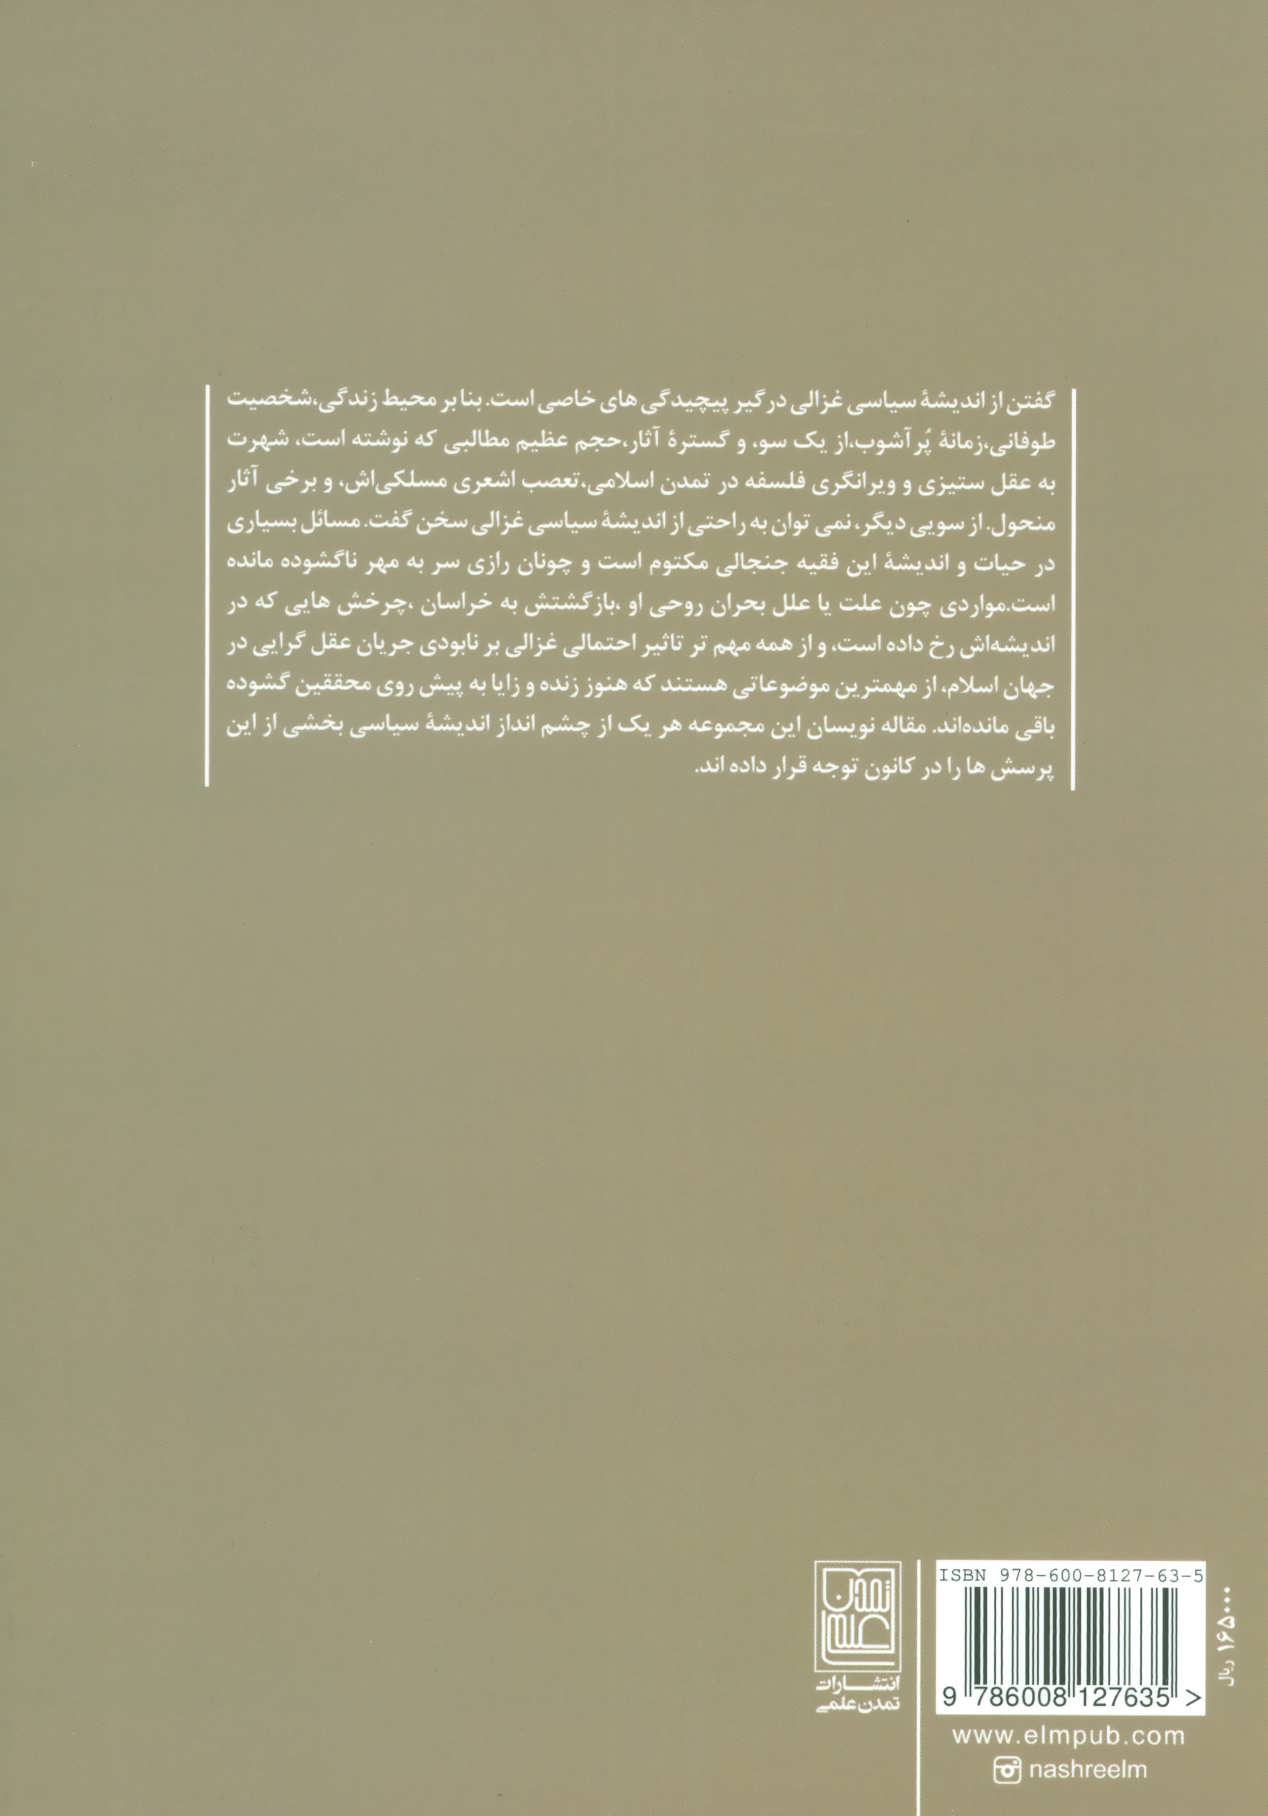 گفتن از اندیشهٔ سیاسی غزالی درگیر پیچیدگی های خاصی است. بنا بر محیط زندگی،شخصیت
طوفانی،زمانهٔ پُر آشوب،از یک سو، و گسترهٔ آثار،حجم عظیم مطالبی که نوشته است، شهرت
به عقل ستیزی و ویرانگری فلسفه در تمدن اسلامی،تعصب اشعری مسلکی‌اش، و برخی آثار
منحول. از سویی دیگر، نمی توان به راحتی از اندیشهٔ سیاسی غزالی سخن گفت. مسائل بسیاری
در حیات و اندیشهٔ این فقیه جنجالی مکتوم است و چونان رازی سر به مهر ناگشوده مانده
است.مواردی چون علت یا علل بحران روحی او ،بازگشتش به خراسان ،چرخش هایی که در
اندیشه‌اش رخ داده است، و از همه مهم تر تاثیر احتمالی غزالی بر نابودی جریان عقل گرایی در
جهان اسلام، از مهمترین موضوعاتی هستند که هنوز زنده و زایا به پیش روی محققین گشوده
باقی مانده‌اند. مقاله نویسان این مجموعه هر یک از چشم انداز اندیشهٔ سیاسی بخشی از این
پرسش ها را در کانون توجه قرار داده اند.
تمدن علمی
انتشارات
تمدن علمی
ISBN 978-600-8127-63-5
9 786008 127635 >
۱۶۵۰۰۰ ریال
www.elmpub.com
nashreelm